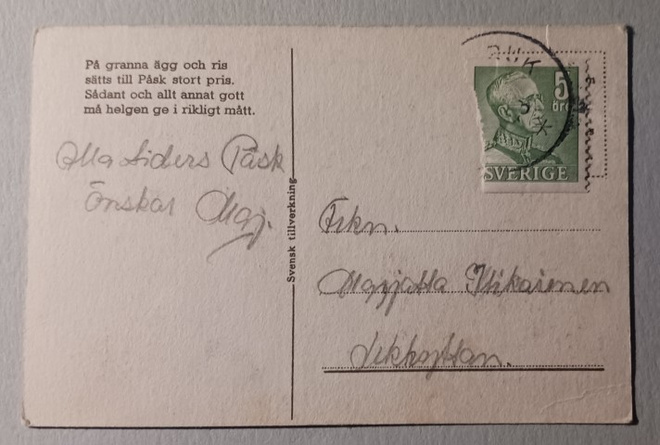 På granna ägg och ris
sätts till Påsk stort pris.
Sådant och allt annat gott
må helgen ge i rikligt mått.
Alla tiders Påsk
Önskar Maj.
Svensk tillverkning
5
öre
SVERIGE
Frkn.
Marjatta